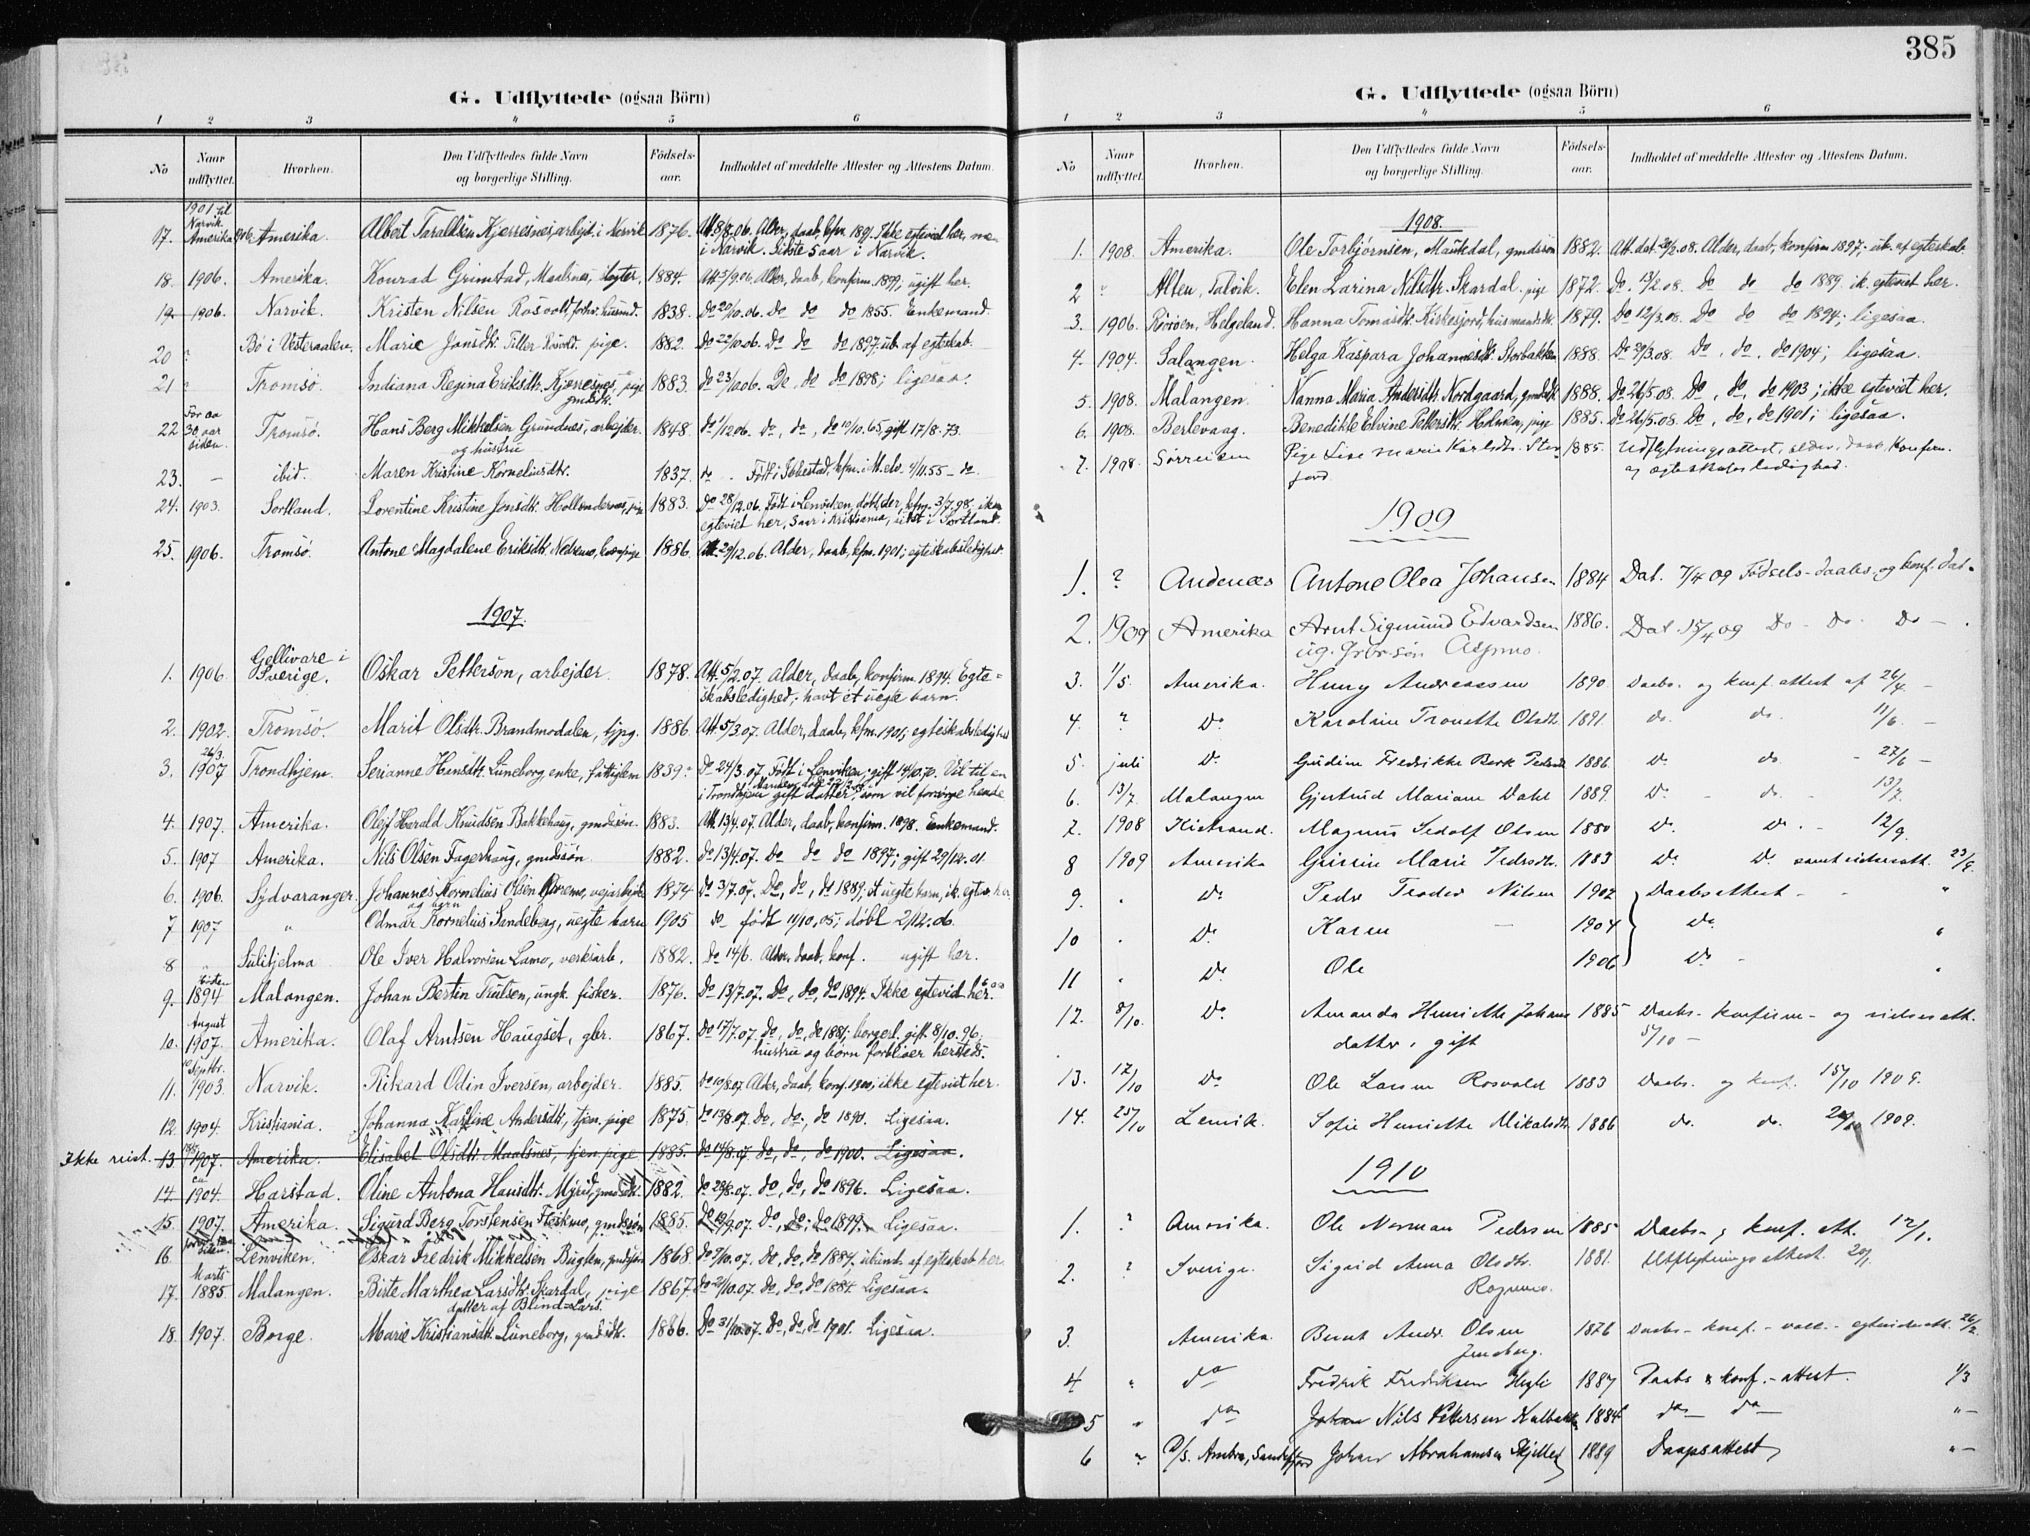 G. Udflyttede (ogsaa Börn)
1 2 3 4 5 6
No Naar udflyttet. Hvorhen. Den Udflyttedes fulde Navn og borgerlige Stilling. Födsels-aar. Indholdet af meddelte Attester og Attestens Datum.
17. 1901 til Narvik Amerika 1906 Amerika. Albert Kjerresnes, arbejd. i Narvik 1876. Att. 8/8.06. Alder, daab, kfm. 1891. Ikke egteviet her,
i Narvik. Sidste 5 aar i Narvik.
18. 1906. Amerika. Konrad Grimstad, Maalsnes, 1884. Att. 5/9.06. Alder, daab, konfirm. 1899; ugift her.
19. 1906. Narvik. Kristen Nilsen Rosvold, forhv. husmd. 1838. Do 22/10.06. Do do do 1855. Enkemand.
20 " Bø i Vesteraalen. Marie Jonsdtr. Tiller Rosvold, pige. 1882. Do 22/10.06. Do do do 1897. ub. af egteskab.
21 " Tromsø. Indiana Regina Eriksdtr. Kjerresnes, pige 1883. do 23/10.06. Do, do do 1898; ligesaa.
gmdsdtr.
22 For ca 30 aar siden. Tromsø. Hans Berg Mikkelsen Grundnes, arbejder. 1848. do 1/12.06. do, do, do 10/10.65, gift 17/8.73.
og hustru
23. – ibid. Maren Kristine Korneliusdtr. 1837. do . Født i Ibbestad, kfm. i M.elv. 4/11.55 – do
24. 1903. Sortland. Lorentine Kristine Jensdtr. 1883. Do 28/12.06. Født i Lenviken, døbt der, kfm. 3/7.98. ikke
egteviet her, 5 aar i Kristiania, sidst i Sortland.
25. 1906. Tromsø. Antone Magdalene Eriksdtr. 1886. Att. 29/12.06. Alder, daab, kfm. 1901; egteskabsledighed.
1907.
1. 1906. Gellivare i Sverige. Oskar Petterson, arbejder. 1878. Att. 5/2.07. Alder, daab, konfirm. 1894. Egte=
skabsledighed; havt et uegte barn.
2. 1902. Tromsø. Marit Olsdtr. Brandmodalen, tjpg. 1886. Att. 5/3.07. Alder, daab, kfm. 1901; egteskabsledighed
3. 26/3 1907 Trondhjem. Serianne Hansdtr. Luneborg, enke, fattiglem 1839. Do 24/3.07. Født i Lenviken; gift 14/10.70. Vil til en
i Trondhjem gift datter, som vil forsørge hende
4. 1907. Amerika. Olaf Harald Knudsen Bakkehaug, gmdssøn. 1883. Att. 13/4.07. Alder, daab, konfirm. 1898. Enkemand.
5. 1907 Amerika. Nils Olsen Fagerhaug, gmdssøn 1882. Do 13/4.07. Do do do 1897; gift 29/12.01
6. 1906. Sydvaranger. Johannes Kornelius Olsen vejarbejder 1874 Do 3/7.07. Do, do, do 1889; et uegte barn, ik. egtev. her
og børn
7 1907 " Odmar Kornelius Sandeberg, uegte barn 1905 do født 11/10.05; døbt 2/12.06.
8 " Sulitjelma Ole Iver Halvorsen Lamo, verksarb. 1882. Do 14/6 Alder, daab, konf. ugift her.
9. siden 1894 Malangen. Johan Berten ungk. fisker. 1876. Do 13/7.07. Do, do, do 1894. Ikke egteviet her.
10. August 1907. Amerika. Olaf Arntsen Haugset, gbr. 1867. Do 17/7.07. do, do, do 1881; borgerl. gift. 8/10.96.
hustru og børn forbliver hersteds.
11. Septbr. 1903. Narvik. Rikard Odin Iversen, arbejder. 1885. Do 10/8.07 Alder, daab, konf. 1900; ikke egteviet her.
12. 1904. Kristiania. Johanna Karline Andersdtr., tjen. pige 1875. Do 13/8.07. Do, do, do 1890. Ligesaa.
Ikke reist. 13 1907. Amerika. Elisabet Olsdtr. Maalsnes, tjen. pige 1885. do 14/8.07 do, do, do 1900. Ligesaa.
14. ca 1904. Harstad. Oline Antona Hansdtr. 1882. do 29/8.07. do, do, do 1896. Ligesaa.
15. 1907. Amerika. Sigurd Berg Torstensen gmdssøn 1885. Do 19/9.07. Do, do, do 1899. Ligesaa.
16. siden. Lenviken. Oskar Fredrik Mikkelsen 1868. do 7/10.07. Do, do, do 1884; ukund. af egteskab her.
17. Marts 1885. Malangen. Birte Marthea Larsdtr. Skardal, pige 1867. do 21/10.07. do, do, do 1884. Ligesaa.
datter af Blind-Lars.
18. 1907. Borge. Marie Kristiansdtr. Luneborg, gmdsdtr. 1886. Do 31/10.07. do, do, do 1901. Ligesaa.
385
G. Udflyttede (ogsaa Börn)
1 2 3 4 5 6
No Naar udflyttet. Hvorhen. Den Udflyttedes fulde Navn og borgerlige Stilling. Födsels-aar. Indholdet af meddelte Attester og Attestens Datum.
1908.
1. 1908. Amerika. Ole Torbjørnsen, Maukdal, gmdssøn 1882. Att. dat. 29/2.08. Alder, daab, konfirm. 1897; ub. af egteskab.
2 " Alten, Talvik. Elen Larina Nilsdtr. Skardal, pige 1872. Do. 13/2.08. Do do do 1889. ik. egteviet her.
3. 1906. Helgeland. Hanna Tomasdtr. Kirkesjord, husmandsdtr. 1879. Do 12/3.08. Do do do 1894; ligesaa.
4. 1904. Salangen. Helga Kaspara Johannesdtr. Storbakken 1888. Do 30/3.08. Do, do, do 1904; ligesaa.
5. 1908. Malangen. Nanna Maria Andersdtr. Nordgaard, gmdsdtr. 1888. Do. 26/5.08. Do, do, do 1903; ikke egteviet her.
6. 1908. Berlevaag. Benedikte Elvine Pettersdtr. Holmen, pige 1885. Do. 26/5.08. Do, do, do 1901; ligesaa.
7. 1908. Sørreisen Pige Lise Marie Karlsdtr. Stor 1885. Udflytningsattest, alder, daab, konfirm.
fjord. og egteskabsledighed.
1909
1. ? Andenæs Antone Olea Johansen 1884 Dat. 7/4 09 Fødsels-daabs- og konf. dat.
2. 1909 Amerika Arnt Sigmund Edvardsen 1886. Dat. 15/4 09 Do – Do – Do – .
ug. grbr. søn Aspmo.
3. 1/5. Amerika. Andreassen 1890 Daabs- og konf. attest af 26/4. –
4. ? Do. Karoline Olsdtr. 1891. do. do. 11/6. –
5. juli Do Gudine Fredrikke Berk Pedersdtr. 1886 Do do. – 27/6 –
6. 13/7. Malangen Gjertrud Mariane Dahl 1889. Do. – do. – 13/7.
7. 1908 Kistrand. Magnus Sedolf Olsen 1880 Do. Do. – 12/9.
8 1909 Amerika Marie Pedersdtr. 1883 Do Do. samt vielsesatt. 23/9.
9. . Do Peder Teodor Nilsen 1902 Daabsattest – – "
10 . Do. Karen – 1904 Do. "
11 . Do. Ole 1906 Do – "
12. 8/10. Do. Amanda Henriette Johans 1885 Daabs- konfirm- og vielsesatt.
datter, gift 5/10 –
13. 12/10 Do Ole Larsen Rosvold 1883 Daabs. og konf. 15/10 1909.
14. 25/10 Lenvik. Sofie Henriette Mikalsdtr. 1886 do. do. 1909.
1910
1. ? Amerika. Ole Norman Pedersen 1885 Daabs- og konf. att. 12/1.
2. ? Sverige. Sigrid Anna Olsdtr. 1881. Utflytningsattest. 20/1.
Rognmo.
3. Amerika. Bernt Andr. Olsen 1876 Daabs- konf.- vacc.- egteviets att. 26/2.
4 " do Fredrik Fredriksen 1887 Daabs & konf.-attest. 1/3
5 " do Johan Nils Petersen 1884 do – do – " –
6 " D/S. Ambra, Sandefjord Johan Abrahamsen 1889 Daapsattest " –